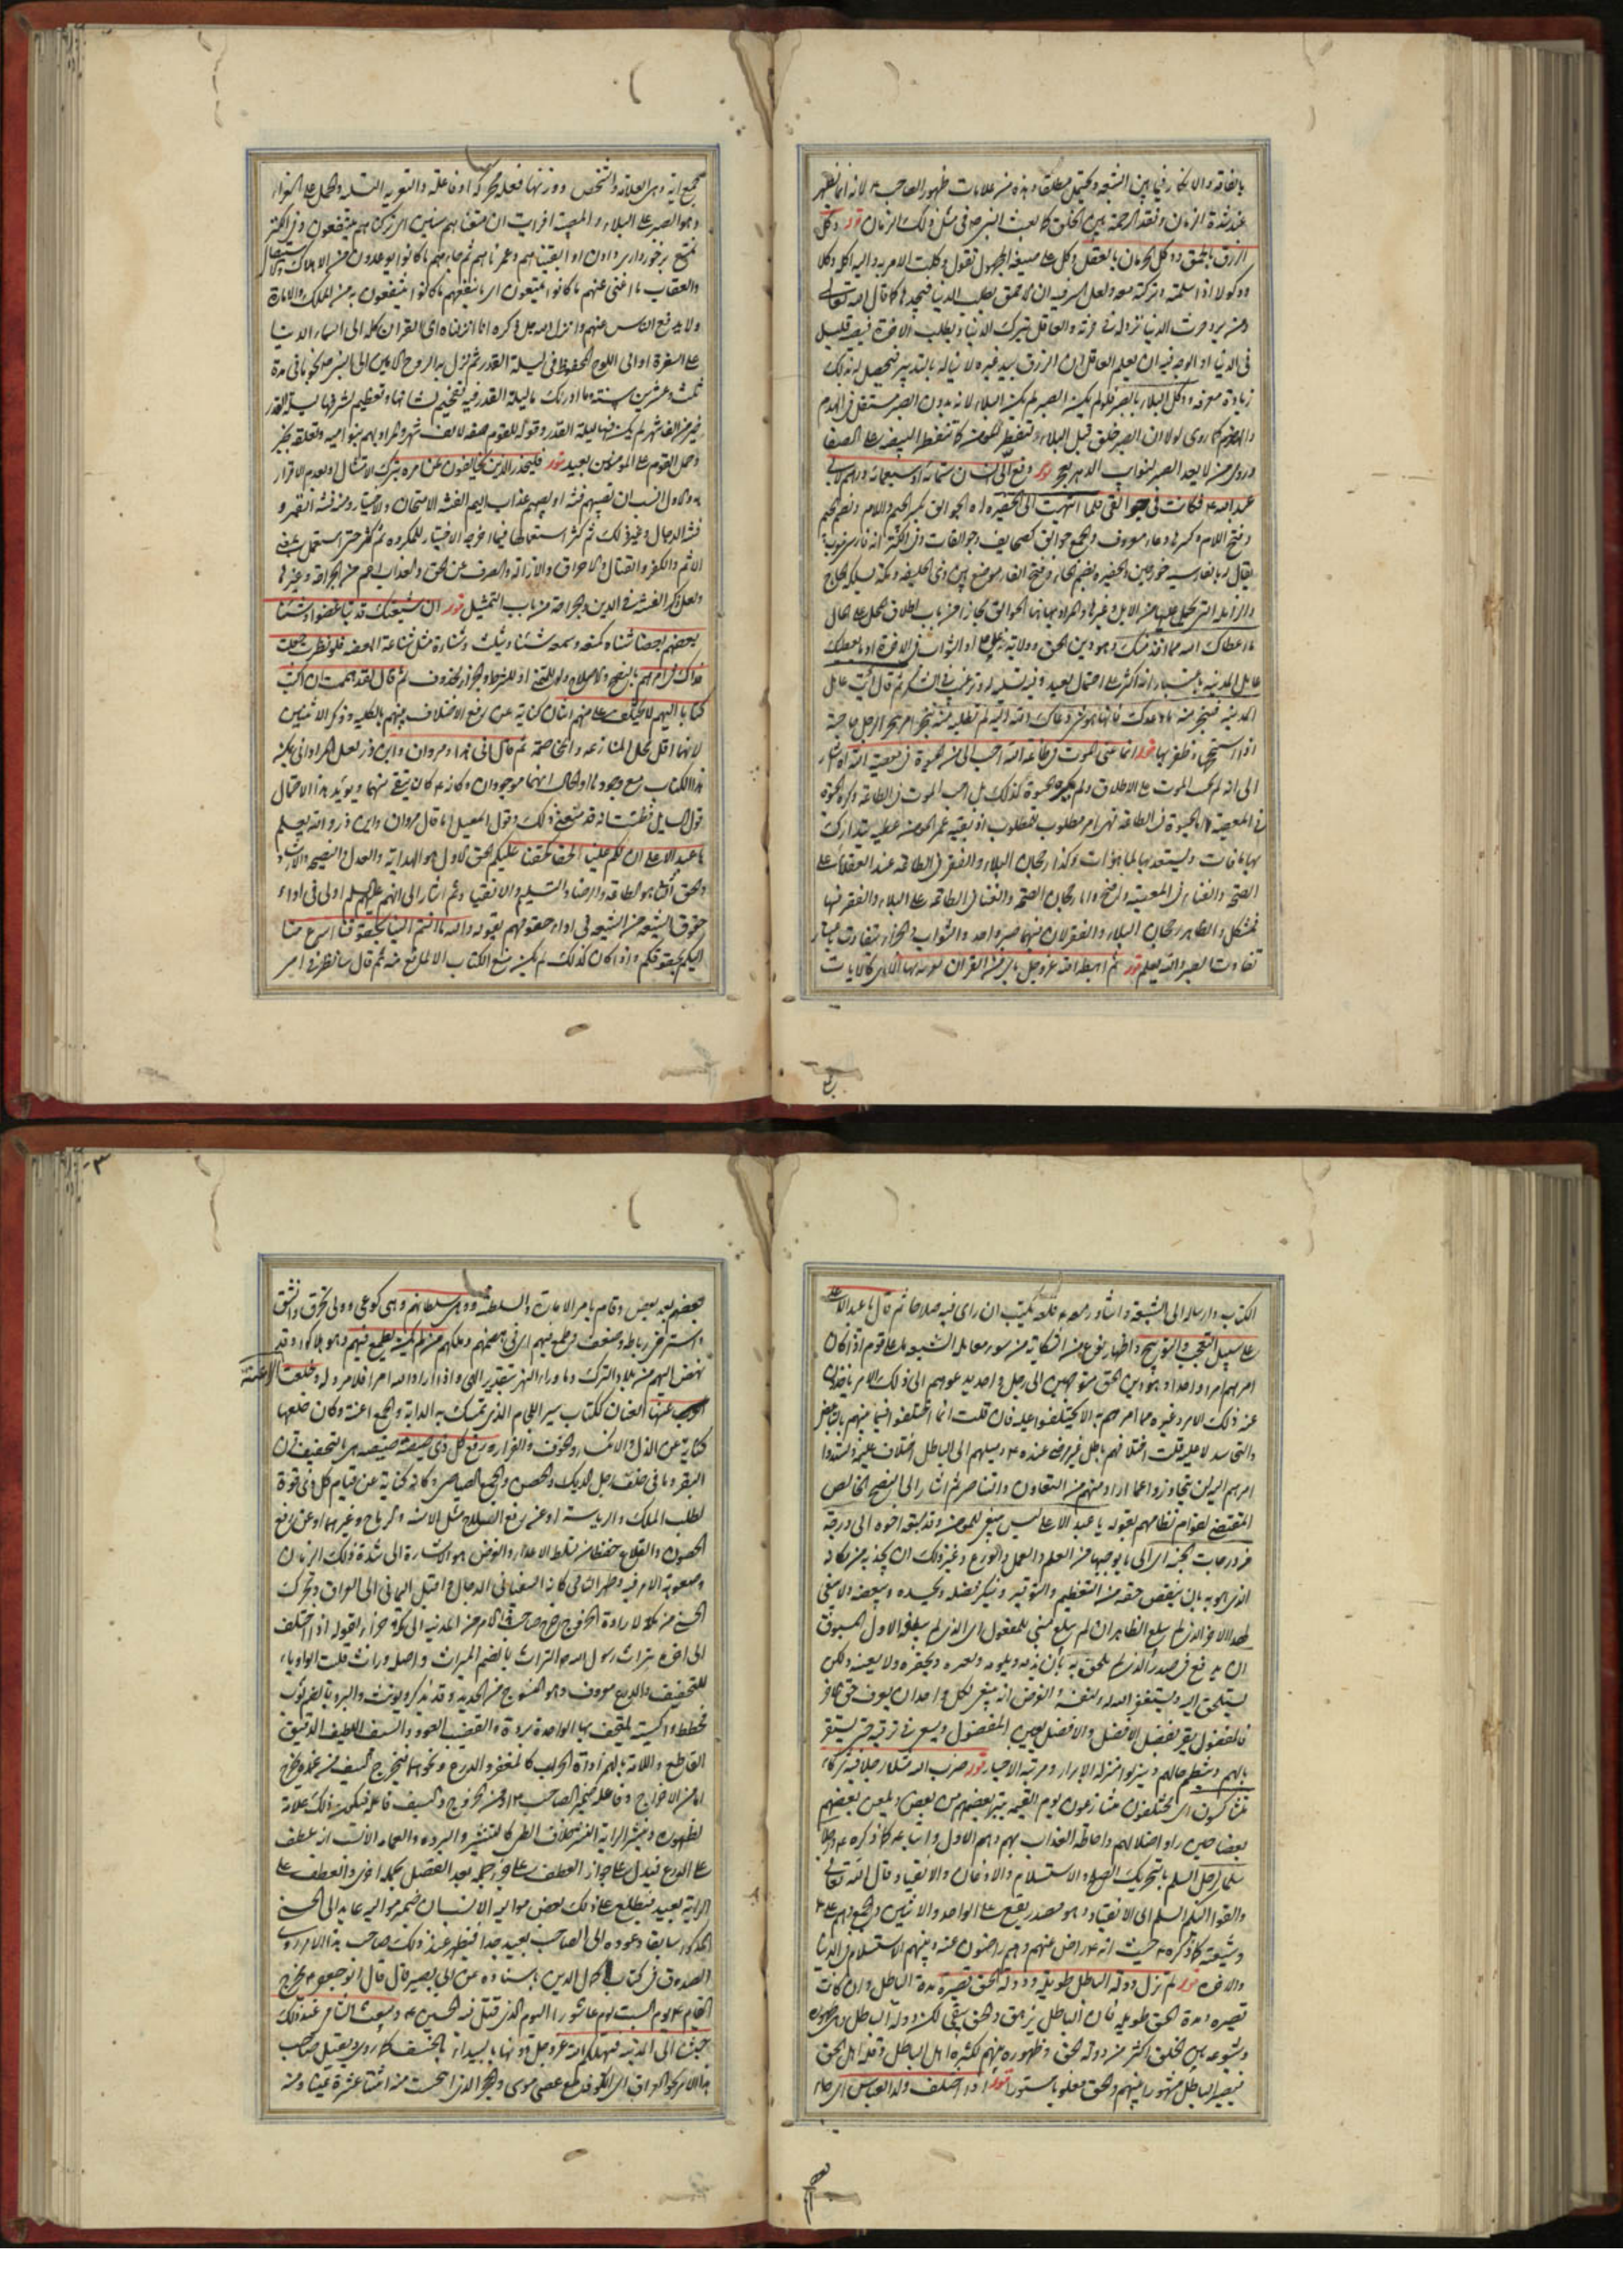 بالفاقه والانكار فيما بين الشيعه ويحتمل مطلقا وهذه من علامات ظهور الصاحب ع لانه انما يظهر
عند شدة الزمان وفقد الرحمة بين الخلق كما بعث النبي ص في مثل ذلك الزمان قوله وكل
الرزق بالحمق ووكل الحرمان بالعقل وكل على صيغة المجهول تقول وكلت الامر به واليه اكله وكلا
ووكولا اذا سلمته وتركته معه ولعل السر فيه ان الاحمق يطلب الدنيا فيجدها كما قال الله تعالى
ومن يرد حرث الدنيا نزد له في حرثه والعاقل يترك الدنيا ويطلب الاخرة فيصير قليل
في الدنيا او الوجه فيه ان يعلم العاقل ان الرزق بيد غيره لا يناله بالتدبير فيحصل له بذلك
زيادة معرفه ووكل البلاء بالصبر فلو لم يكن الصبر لم يكن البلاء لانه بدون الصبر مستقل في الهدم
كما روي لولا ان الصبر خلق قبل البلاء لتفطر المؤمن كما تتفطر البيضه على الصفا
وروي من لا يعد الصبر لنوائب الدهر يعجز قوله دفع الى انسان ستمائة او سبعمائة درهم لابي
عبد الله ع فكانت في جوالقي فلما انتهيت الى الحفيره الجوالق بكسر الجيم واللام وبضم الجيم
وفتح اللام وكسرها وعاء معروف والجمع جوالق كصحايف وجوالقات وفي الكنز انه فارسي
يقال له بالفارسيه خورجين والحفيره بضم الحاء وفتح الفاء موضع بين ذي الحليفه ومكة يسلكه الحاج
والزامله التي يحمل عليها من الابل وغيرها والمراد بها هنا الجوالق مجازا من باب اطلاق المحل على الحال
ما اعطاك الله مما اخذ منك وهو دين الحق وولاية علي او الثواب في الاخرة او ما يعطيك
عامل المدينه باعتبار انه اكثر على احتمال بعيد وفيه تسليه له وترغيب في الشكر ثم قال ائت عامل
المدينه فتنجز منه ما وعدك فانما هو شيء دعاك الله اليه لم نطلبه منه تنجز امر من تنجز الرجل حاجته
اذا استنجحها وظفر بها قوله انما عنى الموت في طاعة الله احب الي من الحيوة في معصية الله اشار
الى انه لم يحب الموت على الاطلاق ولم يكره الحيوة كذلك بل احب الموت في الطاعه وكره الحيوة
في المعصيه واما الحيوة في الطاعه فهو امر مطلوب للمطلوب اذ بقيه عمر المؤمن عطيه يتدارك
بها ما فات ويستعد بها لما هو آت وكذا رجحان البلاء والفقر في الطاعه عند العقلاء على
الصحه والغناء في المعصيه واضح واما رجحان الصحه والغنا في الطاعه على البلاء والفقر فيها
فمشكل والظاهر رجحان البلاء والفقر لان فيهما صبرا واحدا والثواب والجزاء متفاوت بسبب
تفاوت الصبر والله يعلم قوله ثم اهبط الله عز وجل باي من القران لموسها كالايات
مجمع وهي العلاقة والشخص ووزنها فعله محركه او فاعله والتعزيه التسليه والحمل على العزاء
وهو الصبر على البلاء والمصيبه افرايت ان متعناهم سنين اي تركناهم ينتفعون وفي الكنز
تمتع برخورداري دادن او ابقيناهم وعمرناهم ثم جاءهم ما كانوا يوعدون من الاهلاك والاستيصال
والعقاب ما اغنى عنهم ما كانوا يمتعون اي ما ينفعهم ما كانوا ينتفعون به من الملك والامارة
ولا يدفع الناس عنهم وانزل الله جل ذكره انا انزلناه اي القران كله الى السماء الدنيا
على السفرة او الى اللوح المحفوظ في ليلة القدر ثم نزل به الروح الامين الى النبي ص نجوما في مدة
ثلث وعشرين سنة وما ادريك ما ليلة القدر فيه تفخيم لشانها وتعظيم لشرفها ليلة القدر
خير من الف شهر لم يكن فيها ليلة القدر وقوله للقوم صفه لالف شهر والمراد بهم بنو اميه وتعلقه بخير
وحمل القوم على المؤمنين بعيد قوله فليحذر الذين يخالفون عن امره بترك الامتثال او بعدم الاقرار
به والاول انسب ان تصيبهم فتنه او يصيبهم عذاب اليم الفتنه الامتحان والاختبار ومنه فتنه القبر و
فتنه الدجال وغير ذلك ثم كثر استعمالها فيما اخرجه الاختبار للمكروه ثم كثر حتى استعمل بمعنى
الاثم والكفر والقتال والاحراق والازاله والصرف عن الحق والعذاب اعم من الجراحه وغيرها
ولعل ذكر الفتنه في الدين والجراحه من باب التمثيل قوله ان شيعتك قد تباغضوا وشنا
بعضهم بعضا شناه كمنعه وسمعه شنئا وشنأة مثل شناعة ابغضه فلو نظرت جعلت
فداك في امرهم بالنصح والاصلاح ولو للتمني او للشرط والجزاء محذوف ثم قال لقد هممت ان اكتب
كتابا اليهم لا يختلف علي منهم اثنان كناية عن رفع الاختلاف بينهم بالكليه وذكر الاثنين
لانهما اقل محل المنازعه والمخاصمة ثم قال انى هذا ومروان وابن ذر لعل المراد انى يكون
هذا الكتاب مع وجودهما والحال انهما موجودان وكانه ع كان يتقي منهما ويؤيد هذا الاحتمال
قول السائل فظننت انه قد منعني ذلك وقول اسمعيل اما قال مروان وابن ذر والله يعلم
يا عبد الاعلى ان لكم علينا لحقا كحقنا عليكم الحق الاول هو الهدايه والعدل والنصيحه والارشاد
والحق الثاني هو الطاعه والرضا والتسليم والانقياد ثم اشار الى انهم عليهم السلم اولى في اداء
حقوق الشيعه من الشيعه في اداء حقوقهم بقوله والله ما انتم الينا بحقوقنا اسرع منا
اليكم بحقوقكم واذا كان كذلك لم يكن منع الكتاب الا لمانع منه ثم قال سانظر في امر
الكتاب وارساله الى الشيعه واشاورهم فلعله يكتب ان راى فيه صلاحا ثم قال يا عبد الاعلى
على سبيل التعجب والتوبيخ واظهار نوع من الشكايه من سوء معامله الشيعه ما على قوم اذا كان
امرهم امرا واحدا وهو دين الحق متوجهين الى رجل واحد يدعوهم الى ذلك الامر ياخذون
عنه ذلك الامر وغيره مما امرهم به الا يختلفوا عليه فان قلت انما اختلفوا فيما بينهم بالتباغض
والتحاسد لا عليه قلت اختلافهم باطل غير مرضي عنده ع وميلهم الى الباطل اختلاف عليه ويسندوا
امرهم اليه لن يتجاوزوا عما اراد منهم من التعاون والتناصر ثم اشار الى النصح الخالص
المقتضي لقوام نظامهم بقوله يا عبد الاعلى ليس ينبغي للمؤمن وقد سبقه اخوه الى درجة
من درجات الجنه اي الى ما يوجبها من العلم والعمل والورع وغير ذلك ان يجذبه من مكانه
الذي هو به بان ينقص حقه من التعظيم والتوقير وينكر فضله ويحسده ويبغضه ولا ينبغي
لهذا الاخر الذي لم يبلغ الظاهر ان لم يبلغ مبني للمفعول اي الذي لم يبلغه الاول المسبوق
ان يدفع في صدر الذي لم يلحق به بان يذمه ويلومه ويعيره ويحقره ولا يعينه ولكن
يستلحق اليه ويستغفر الله له ولنفسه الغرض انه ينبغي لكل واحد ان يعرف حق الاخر
فالمفضول يقر بفضل الافضل والافضل يعين المفضول ويسعى في ترقيه حتى يستقر
بالهم وينتظم حالهم وينزلوا منزلة الابرار ومرتبة الاحبار قوله ضرب الله مثلا رجلا فيه شركاء
متشاكسون اي مختلفون متنازعون يوم القيمه يتبرا بعضهم من بعض ويلعن بعضهم
بعضا حين راوا ضلالهم واحاطه العذاب بهم وهم الاول واتباعه كما ذكره ع ورجلا
سلما لرجل السلم بالتحريك الصلح والاستسلام والاذعان والانقياد وقال الله تعالى
والقوا اليكم السلم اي الانقياد وهو مصدر يقع على الواحد والاثنين والجمع وهم علي ع
وشيعته كما ذكره ع حيث انه ع راض عنهم وهم راضون عنه وبينهم الاستسلام في الدنيا
والاخره قوله لم تزل دولة الباطل طويلة ودولة الحق قصيرة مدة الباطل وان كانت
قصيره ومدة الحق طويله فان الباطل يزهق والحق يبقى لكن دولة الباطل اي ظهوره
وشيوعه بين الخلق اكثر من دولة الحق وظهوره بينهم لكثره اهل الباطل وقله اهل الحق
فيصير الباطل مشهورا بينهم والحق مغلوبا مستورا قوله اذا اختلف ولد العباس اي جاء
بعضهم بعد بعض وقام بامر الامارة والسلطنه ووهى سلطانهم وهى كوعى وولى تخرق وانشق
واسترخى رباطه وضعف وطمع فيهم اي في عصمتهم وملكهم من لم يكن يطمع فيهم وهو هلاكو وقد
نهض اليهم من بلاد الترك وما وراء النهر بتقدير الهي واذا اراد الله امرا فلا مرد له وخلعت العرب الاعنة
اعنتها العنان ككتاب سير اللجام الذي تمسك به الدابة والجمع اعنة وكان خلعها
كناية عن الذل والانكسار والخوف والفرار ورفع كل ذي صيصية صيصيته هي بالتخفيف قرن
البقر وما في خلف رجل الديك والحصن والجمع الصياصي وكانه كناية عن قيام كل ذي قوة
لطلب الملك والرياسة او عن رفع السلاح مثل الاسنه والرماح وغيرهما او عن رفع
الحصون والقلاع حفظا من تسلط الاعداء والغرض هو الاشارة الى شدة ذلك الزمان
وصعوبة الامر فيه وظهر الشامي كانه السفياني او الدجال واقبل اليماني الى العراق وتحرك
الحسني من مكة لارادة الخروج خرج صاحب هذا الامر من المدينه الى مكة جزاء لقوله اذا اختلف
الى اخره بتراث رسول الله ص التراث بالضم الميراث واصله وراث قلبت الواو تاء
للتخفيف والدرع معروف وهو المنسوج من الحديد وقد يذكر ويؤنث والبرد بالضم ثوب
مخطط واكسيه يلتحف بها الواحدة بردة والقضيب العود والسيف اللطيف الدقيق
القاطع واللامة بالهمز اداة الحرب كالمغفر والدرع ونحوهما فيخرج السيف من غمده يخرج
اما من الاخراج وفاعله ضمير الصاحب ع او من الخروج والسيف فاعله فيكون ذلك علامة
لظهوره وينشر الراية النشر خلاف الطي كالتنشير والبرده والعمامه الانسب انه عطف
على الدرع فيدل على جواز العطف على جزء جمله بعد الفصل بجمله اخرى والعطف على
الراية بعيد فيطلع على ذلك بعض مواليه الانسب ان ضمير مواليه عايد الى الحسني
المذكور سابقا وعوده الى الصاحب بعيد جدا فيظهر عند ذلك صاحب هذا الامر روى
الصدوق في كتاب كمال الدين باسناده عن ابي بصير قال قال ابو جعفر ع يخرج
القايم ع يوم السبت يوم عاشورا اليوم الذي قتل فيه الحسين ع ويبعث الشامي عند ذلك
جيشا الى المدينه فيهلكهم الله عز وجل دونها بالبيداء بالخسف كما روي ويقبل صاحب
هذا الامر نحو العراق اي الكوفه مع عصى موسى والحجر الذي انبجست منه اثنتا عشرة عينا ومنه